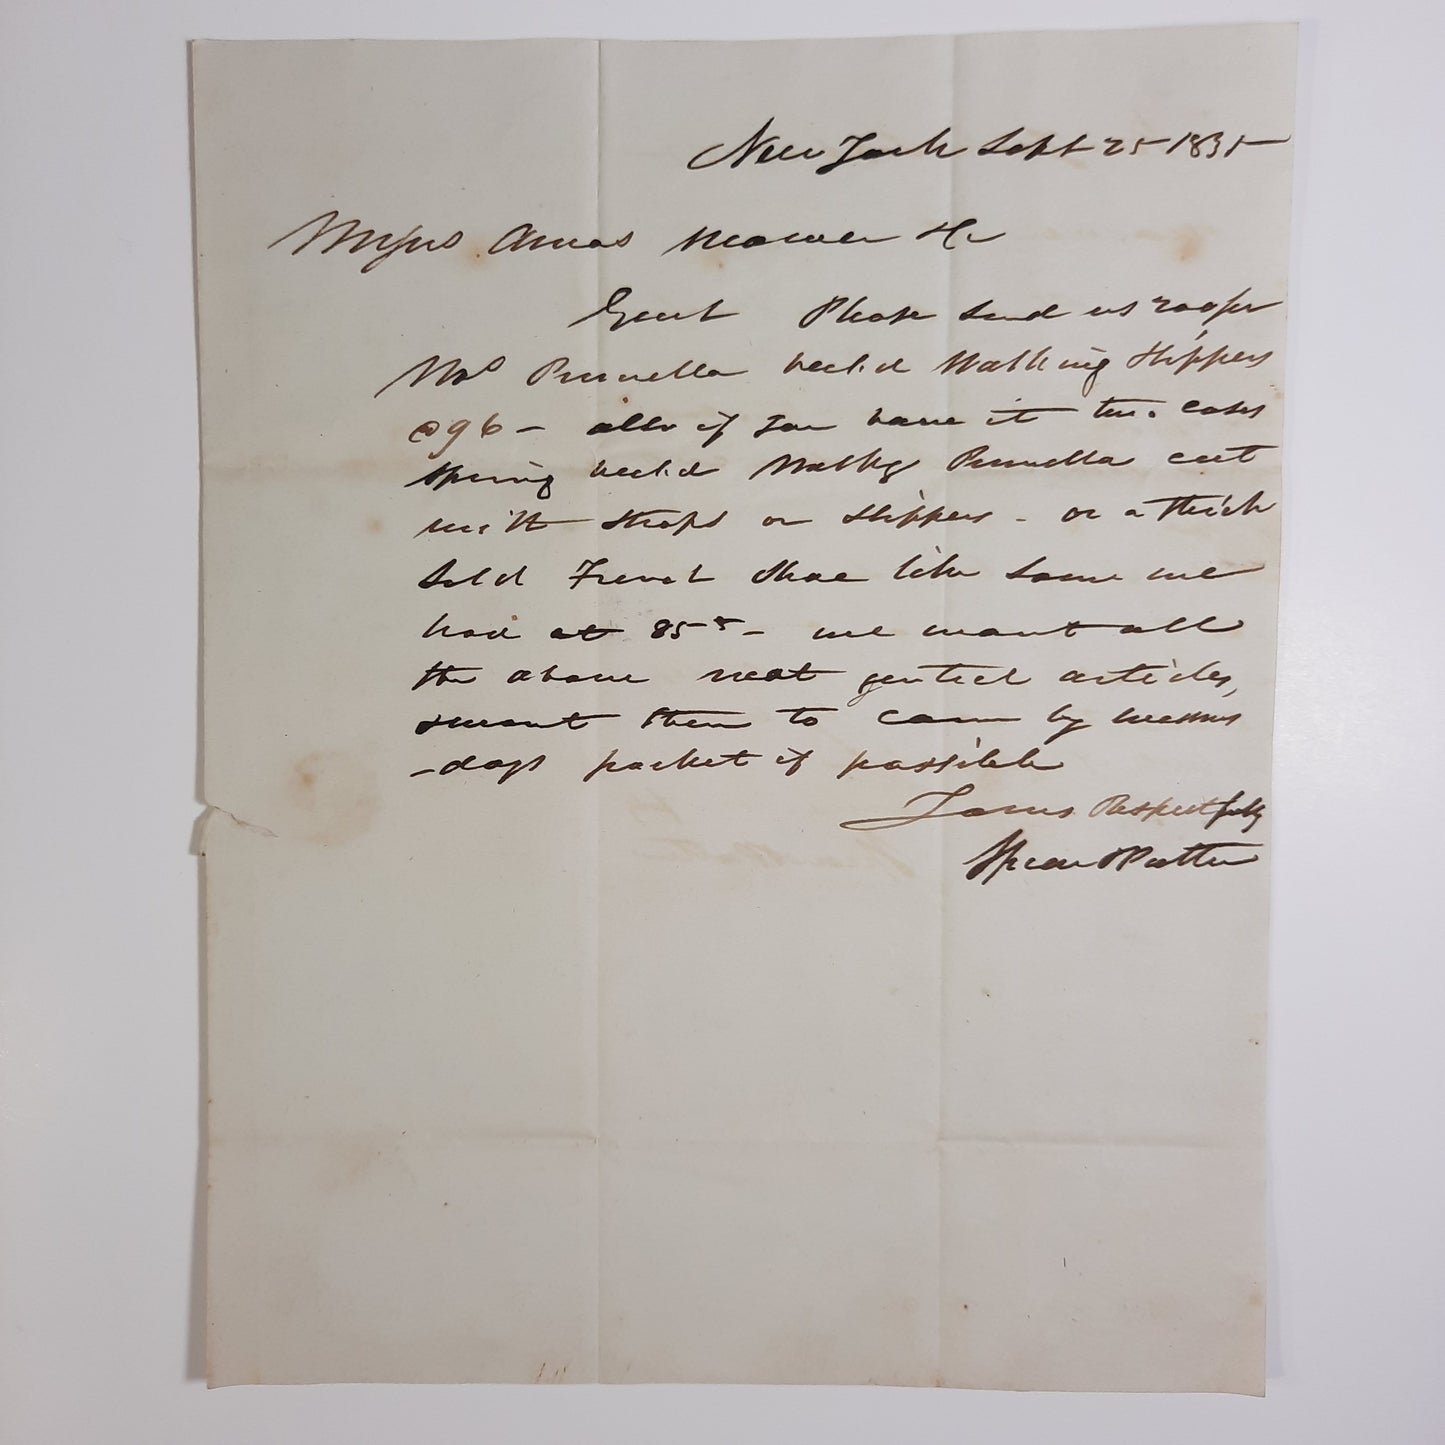 New York Sept 25 1835
Messrs Amos
Gent Please send us 200 pr
Prunella heeld Walking Slippers
@ 96 - also if you have it two cases
Spring heeld Walkg Prunella cut
with straps or slippers - or a thick
sold French Shoe like some we
had at 85 - we want all
the above neat genteel articles,
want them to come by
days packet if possible
Yours Respectfully
Spear & Patten